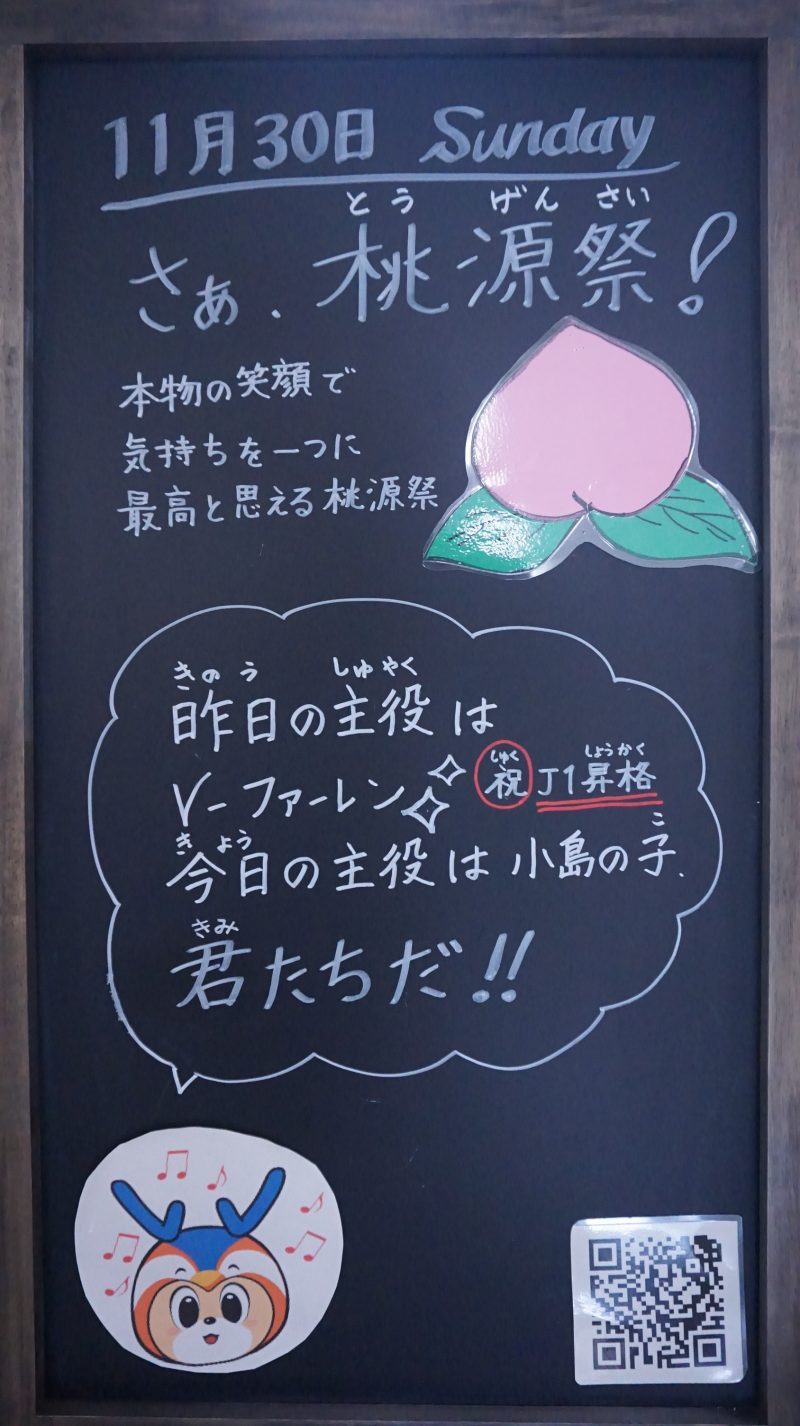 11月30日 Sunday
とう げん さい
さぁ、桃源祭!
本物の笑顔で
気持ちを一つに
最高と思える桃源祭
きのう しゅやく
昨日の主役は
V-ファーレン
しゅく しょうかく
祝 J1昇格
きょう こ
今日の主役は小島の子、
きみ
君たちだ!!